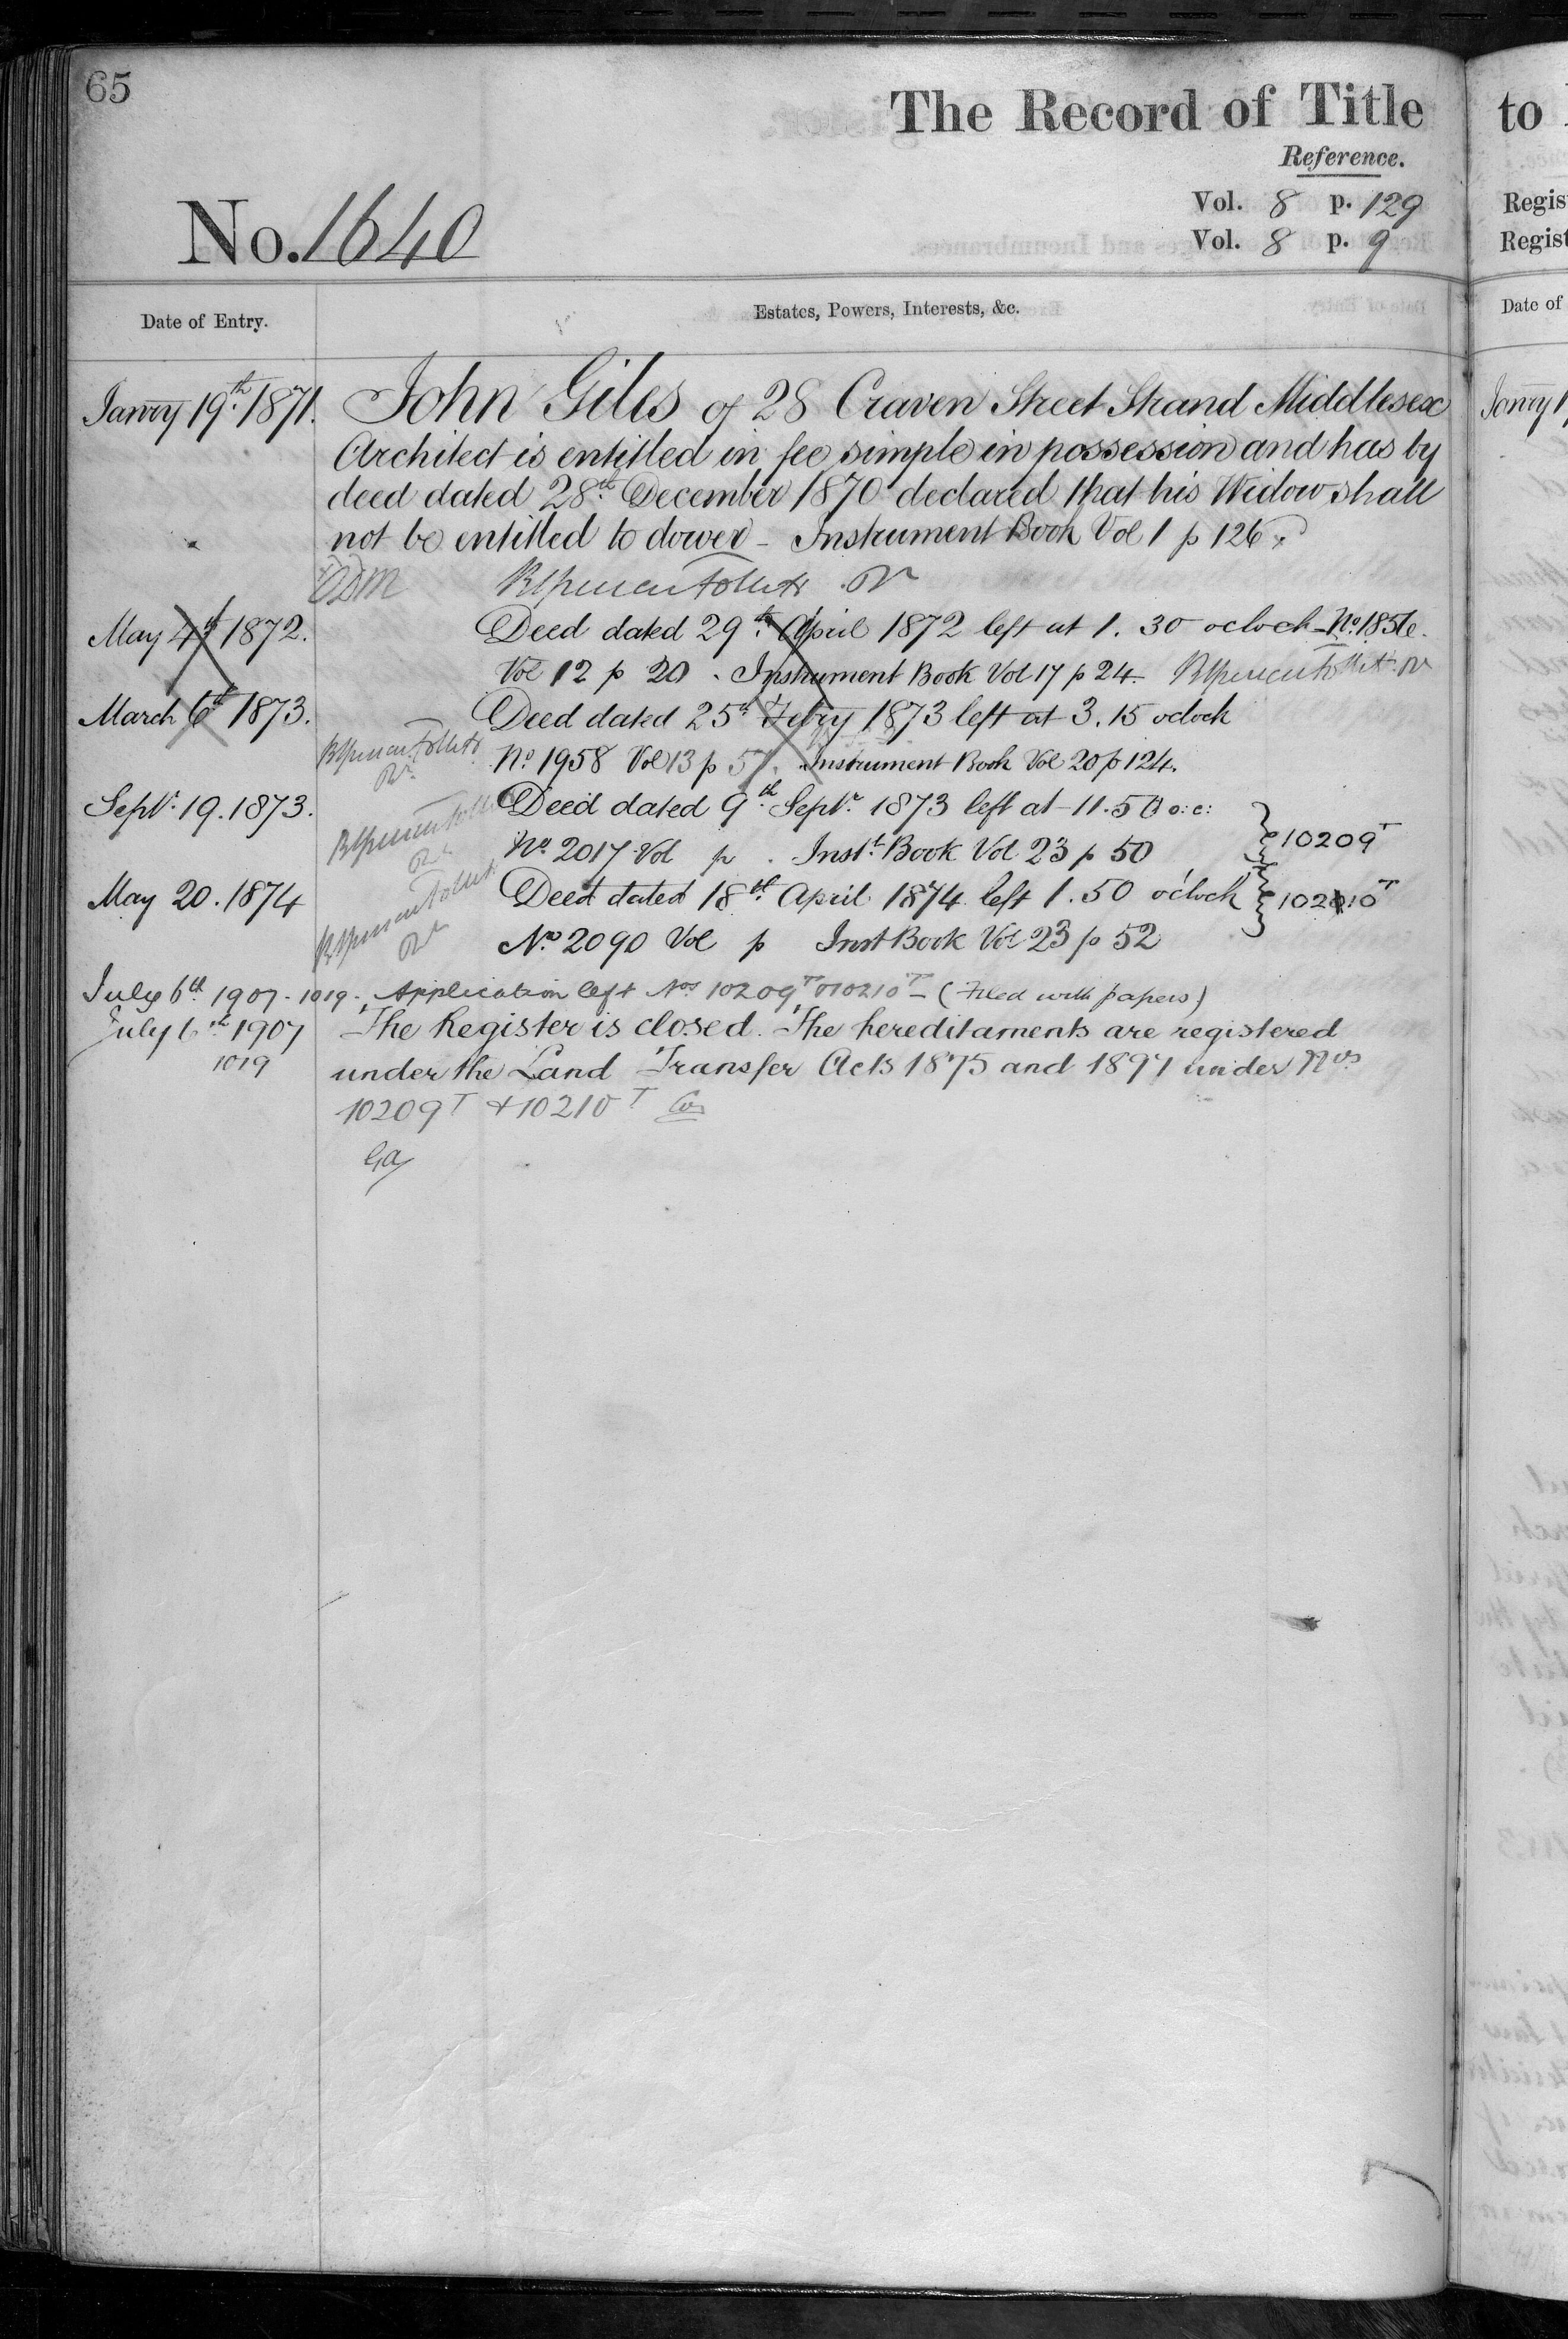 65
The Record of Title
to
Reference.
Vol. 8 p. 129
Regis
No. 1640
Vol. 8 p. 9
Regist
Date of Entry.
Estates, Powers, Interests, &c.
Date of
Janry 19th. 1871. John Giles of 28 Craven Street Strand Middlesex
Architect is entitled in fee simple in possession and has by
deed dated 28th. December 1870 declared that his Widow shall
not be entitled to dower – Instrument Book Vol 1 p 126
May 4th 1872. Deed dated 29th. April 1872 left at 1. 30 oclock – No.
Vol 12 p 20 . Instrument Book Vol 17 p 24.
March 6th 1873. Deed dated 25th Febry 1873 left at 3.15 oclock
No 1958 Vol 13 p 51. Instrument Book Vol 20 p 124.
Septr. 19. 1873. Deed dated 9th. Septr. 1873 left at 11.50 o:c:
No. 2017 Vol p . Instt. Book Vol 23 p 50
10209T
May 20. 1874 Deed dated 18th. April 1874 left 1.50 o'clock
10210T
No. 2090 Vol p Inst Book Vol 23 p 52
July 6th 1907 - 1019. Application left Nos 10209T 10210T – (Filed with papers)
July 6th 1907 The Register is closed. The hereditaments are registered
1019 under the Land Transfer Acts 1875 and 1897 under Nos
10209T + 10210T